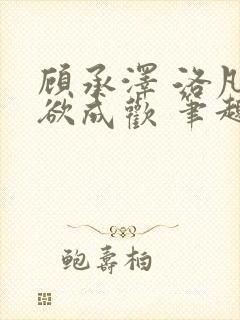 顾承泽 洛凡
欲成欢 笔趣
鲍寿柏